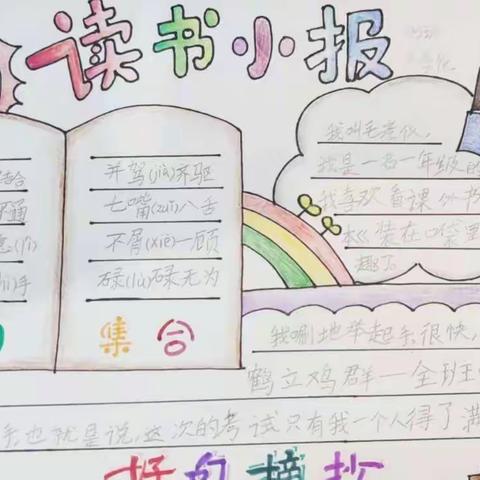 读书小报
并驾(jià)齐驱
七嘴(zuǐ)八舌
不屑(xiè)一顾
碌(lù)碌无为
集合
我是一名一年级的
我喜欢看课外书
装在口袋里
趣了
我唰地举起手很快,
鹤立鸡群——全班
也就是说,这次的考试只有我一个人得了满
好句摘抄